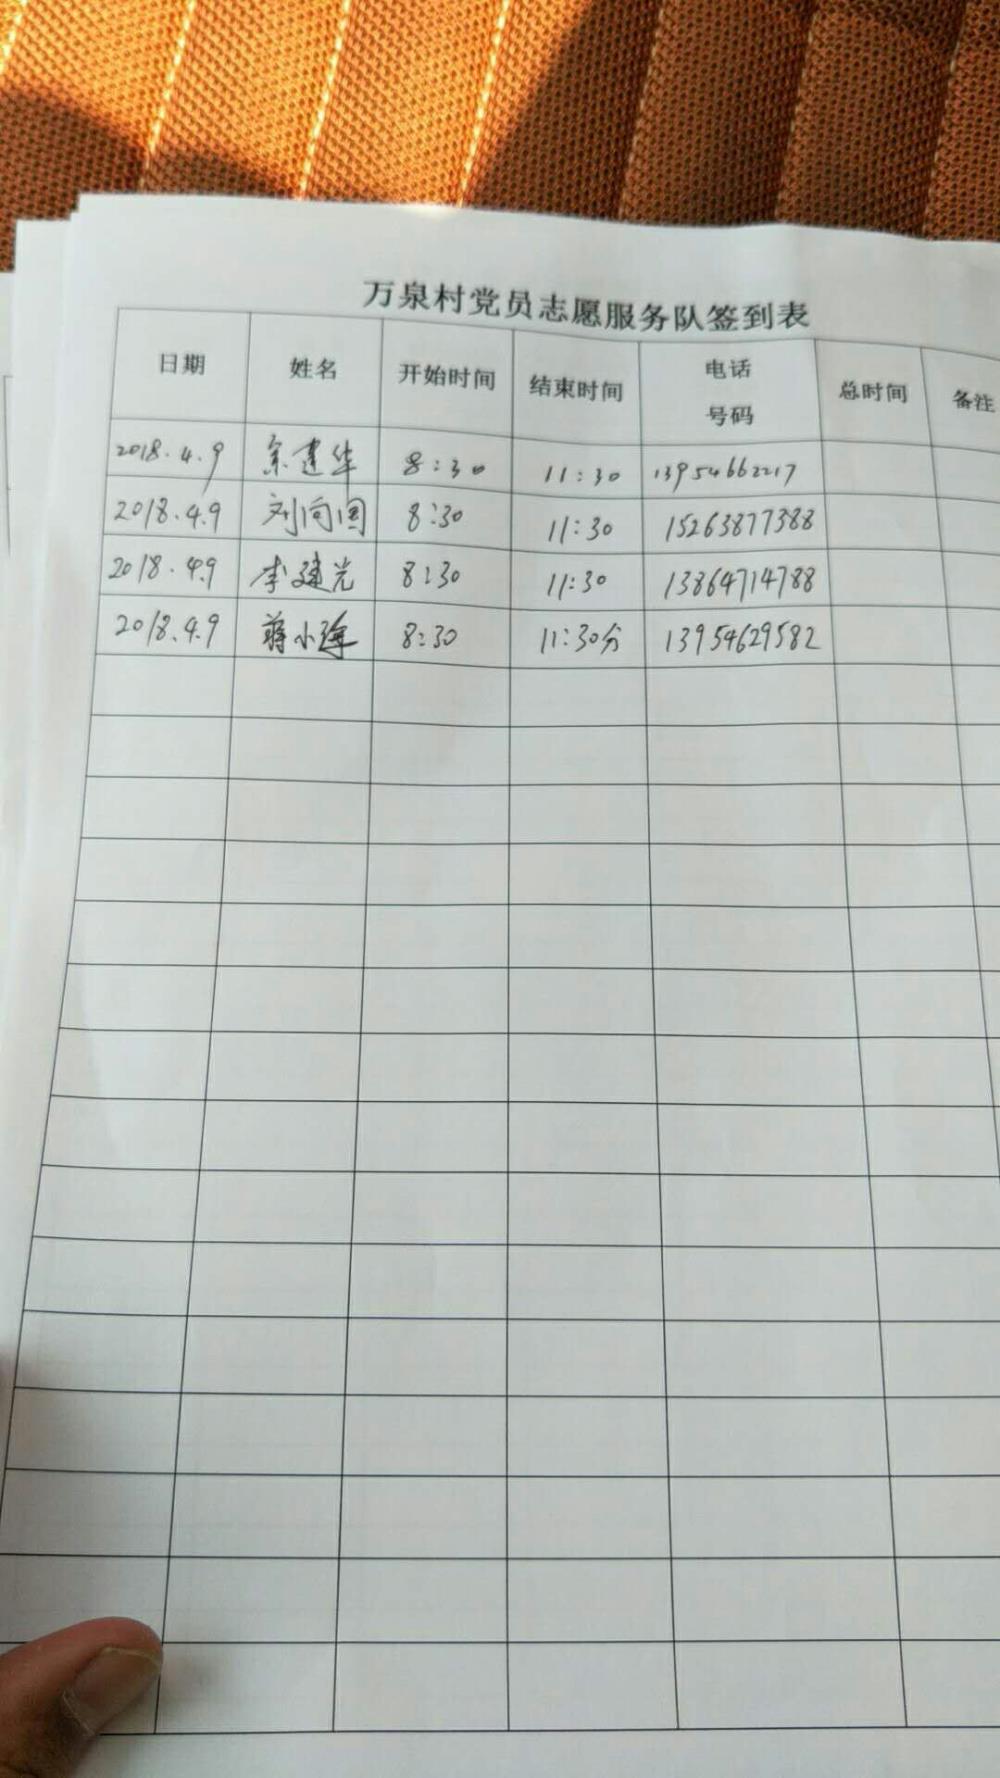 万泉村党员志愿服务队签到表
日期 姓名 开始时间 结束时间 电话号码 总时间 备注
2018.4.9 宗建华 8:30 11:30 13954662217
2018.4.9 刘向国 8:30 11:30 15263877388
2018.4.9 李建光 8:30 11:30 13864714788
2018.4.9 蒋小莲 8:30 11:30分 13954629582